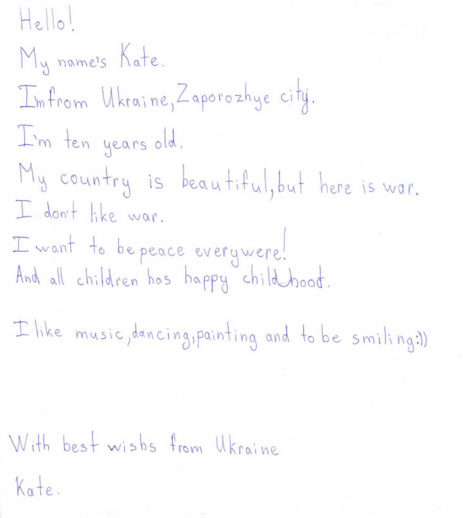 Hello!
My name's Kate.
I'm from Ukraine, Zaporozhye city.
I'm ten years old.
My country is beautiful, but here is war.
I don't like war.
I want to be peace everywere!
And all children has happy childhood.
I like music, dancing, painting and to be smiling:))
With best wishs from Ukraine
Kate.